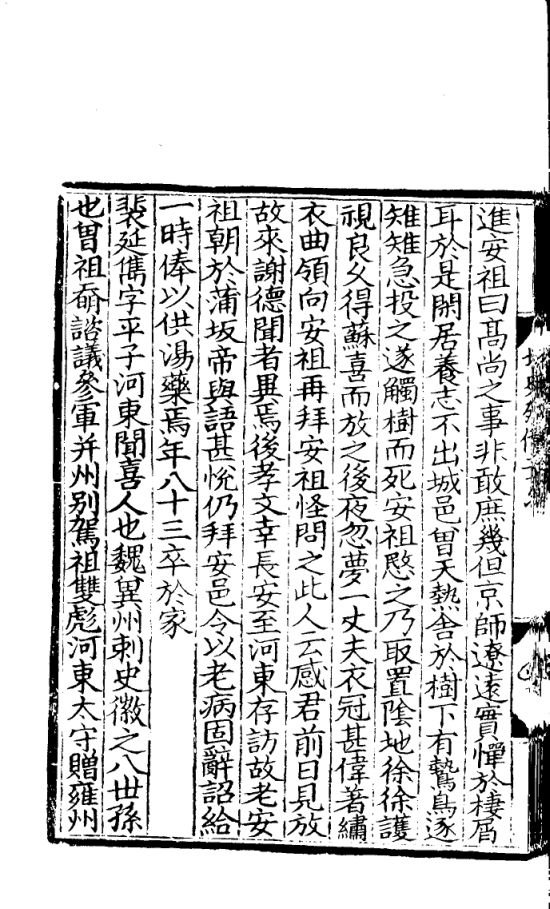 進安祖曰髙尚之事非敢庶幾但京師遼遠實憚於棲屑
耳於是閑居養志不出城邑曽天熱舎於樹下有鷙鳥逐
雉雉急投之遂觸樹而死安祖愍之乃取置陰地徐徐護
視良久得蘇喜而放之後夜忽夢一丈夫衣冠甚偉著繡
衣曲領向安祖再拜安祖怪問之此人云感君前日見放
故來謝德聞者異焉後孝文幸長安至河東存訪故老安
祖朝於蒲坂帝與語甚悅仍拜安邑令以老病固辭詔給
一時俸以供湯藥焉年八十三卒於家
裴延儁字平子河東聞喜人也魏兾州刺史徽之八世孫
也曽祖奣諮議參軍并州别駕祖雙彪河東太守贈雍州